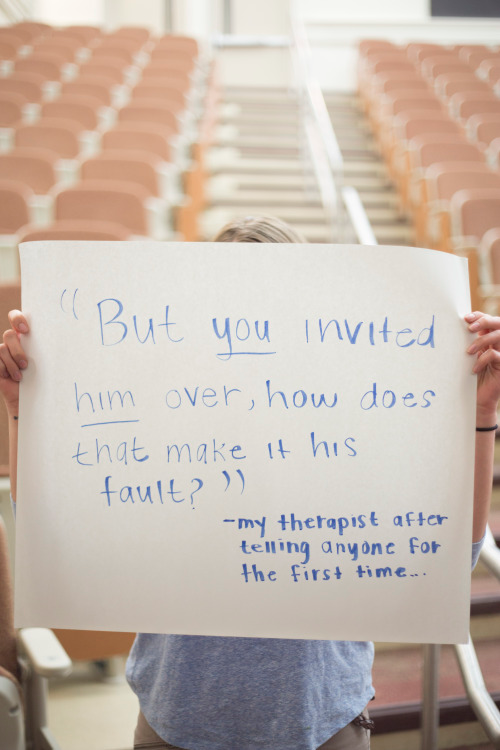 "But you invited
him over, how does
that make it his
fault?"
-my therapist after
telling anyone for
the first time...